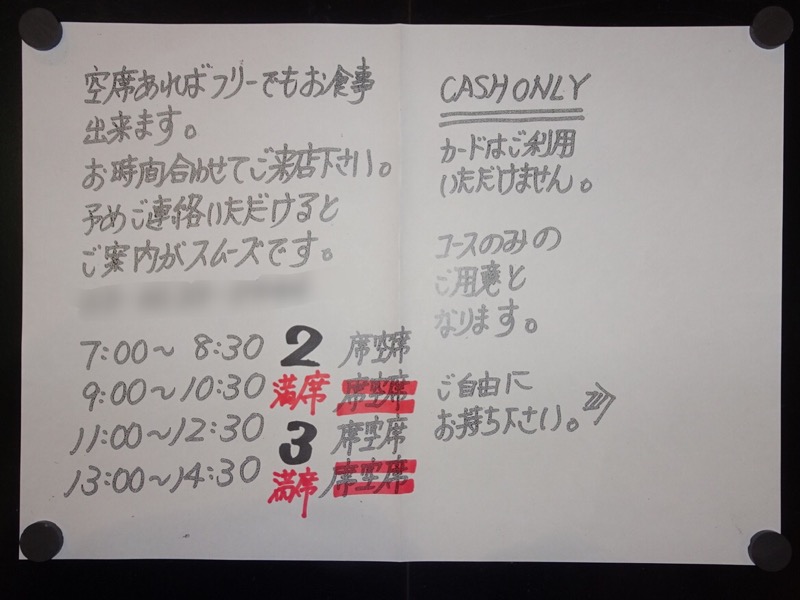 空席あればフリーでもお食事
出来ます。
お時間合わせてご来店下さい。
予めご連絡いただけると
ご案内がスムーズです。
7:00～8:30 2 席空席
9:00～10:30 満席 席空席
11:00～12:30 3 席空席
13:00～14:30 満席 席空席
CASH ONLY
カードはご利用
いただけません。
コースのみの
ご用意と
なります。
ご自由に
お持ち下さい。